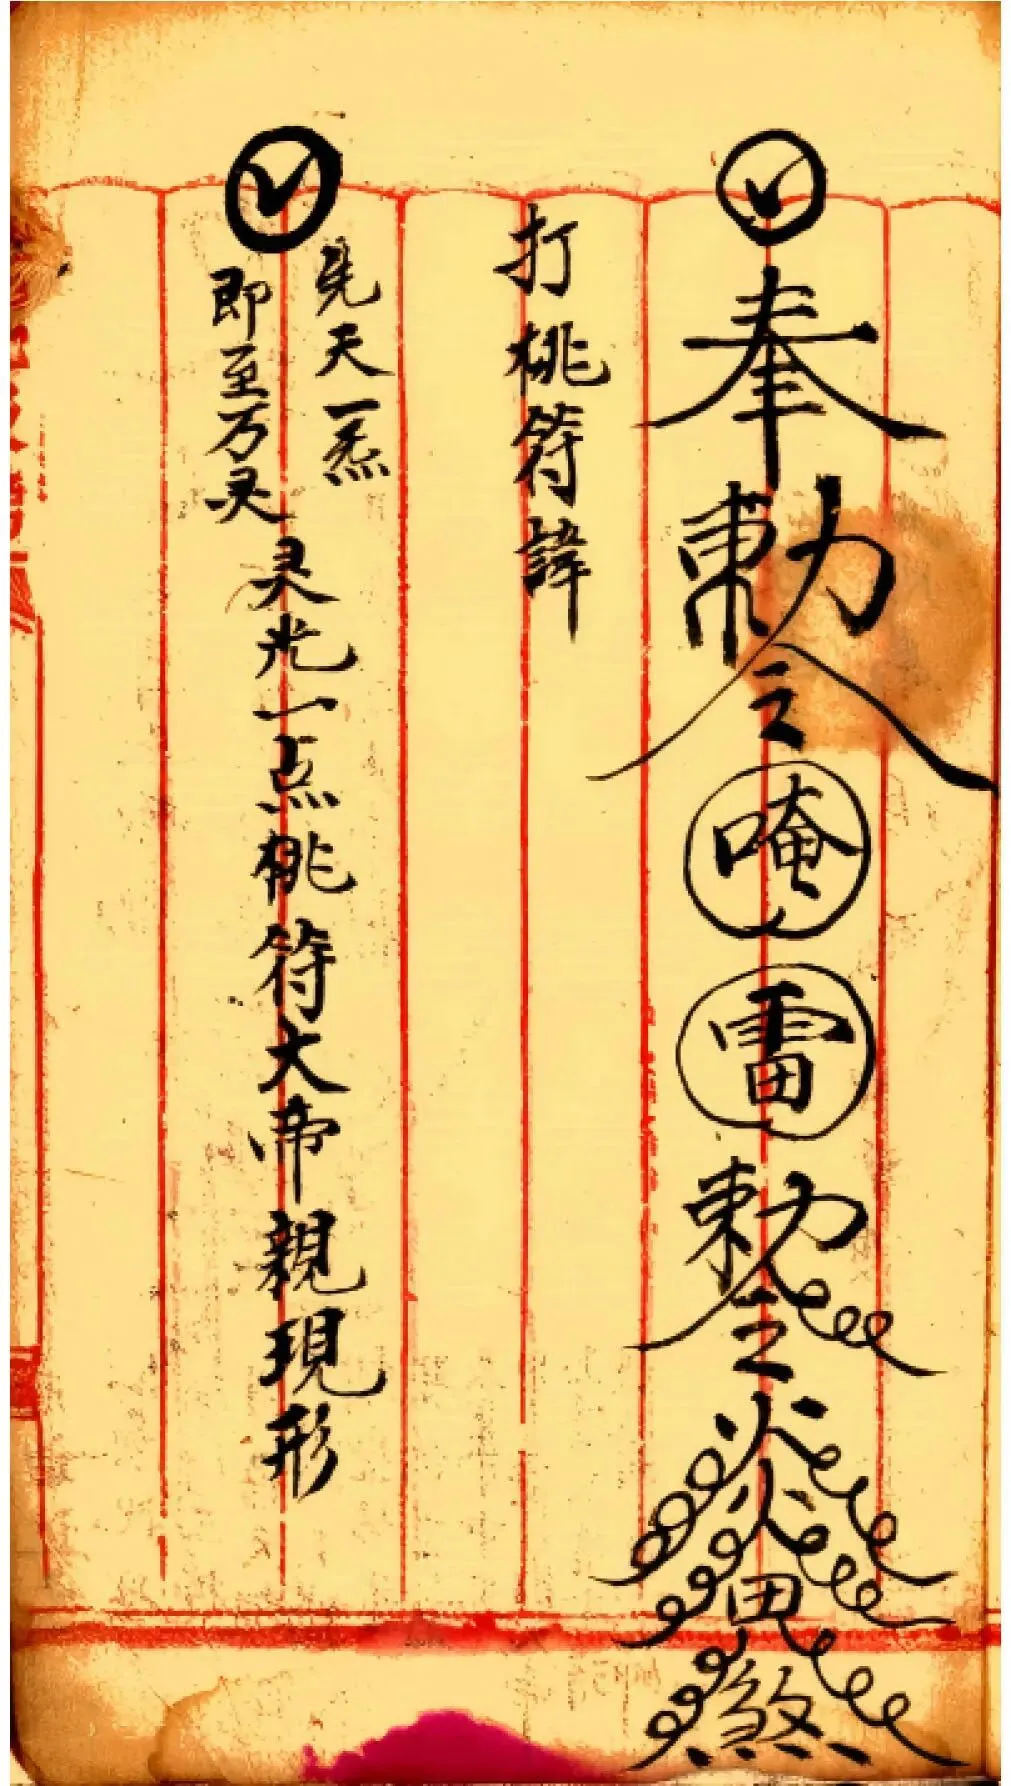 奉勅令唵雷勅令火火田煞
打桃符諱
先天一炁
即至万灵
灵光一点桃符大帝親現形